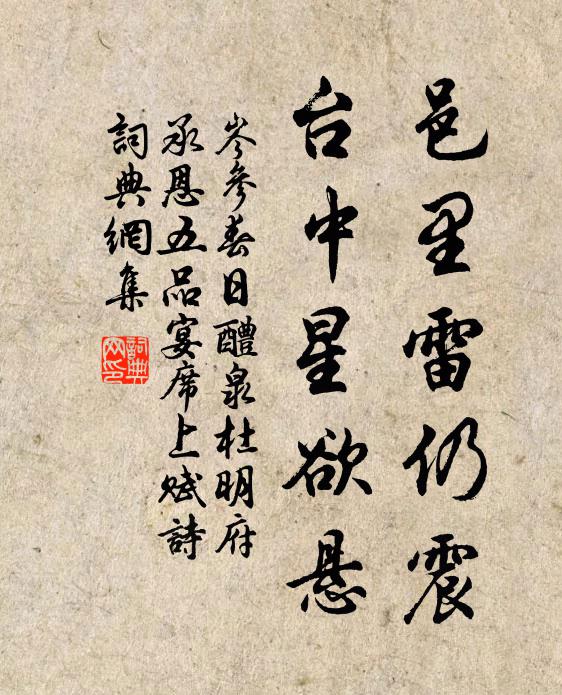 邑里雷仍震
台中星欲悬
岑参春日醴泉杜明府
承恩五品宴席上赋詩
詞典網集
詞典
网印